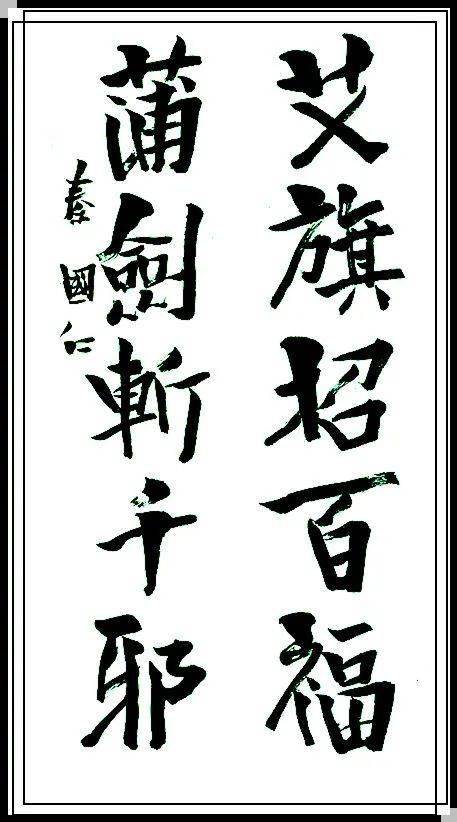 艾旗招百福
蒲劍斬千邪
秦國仁